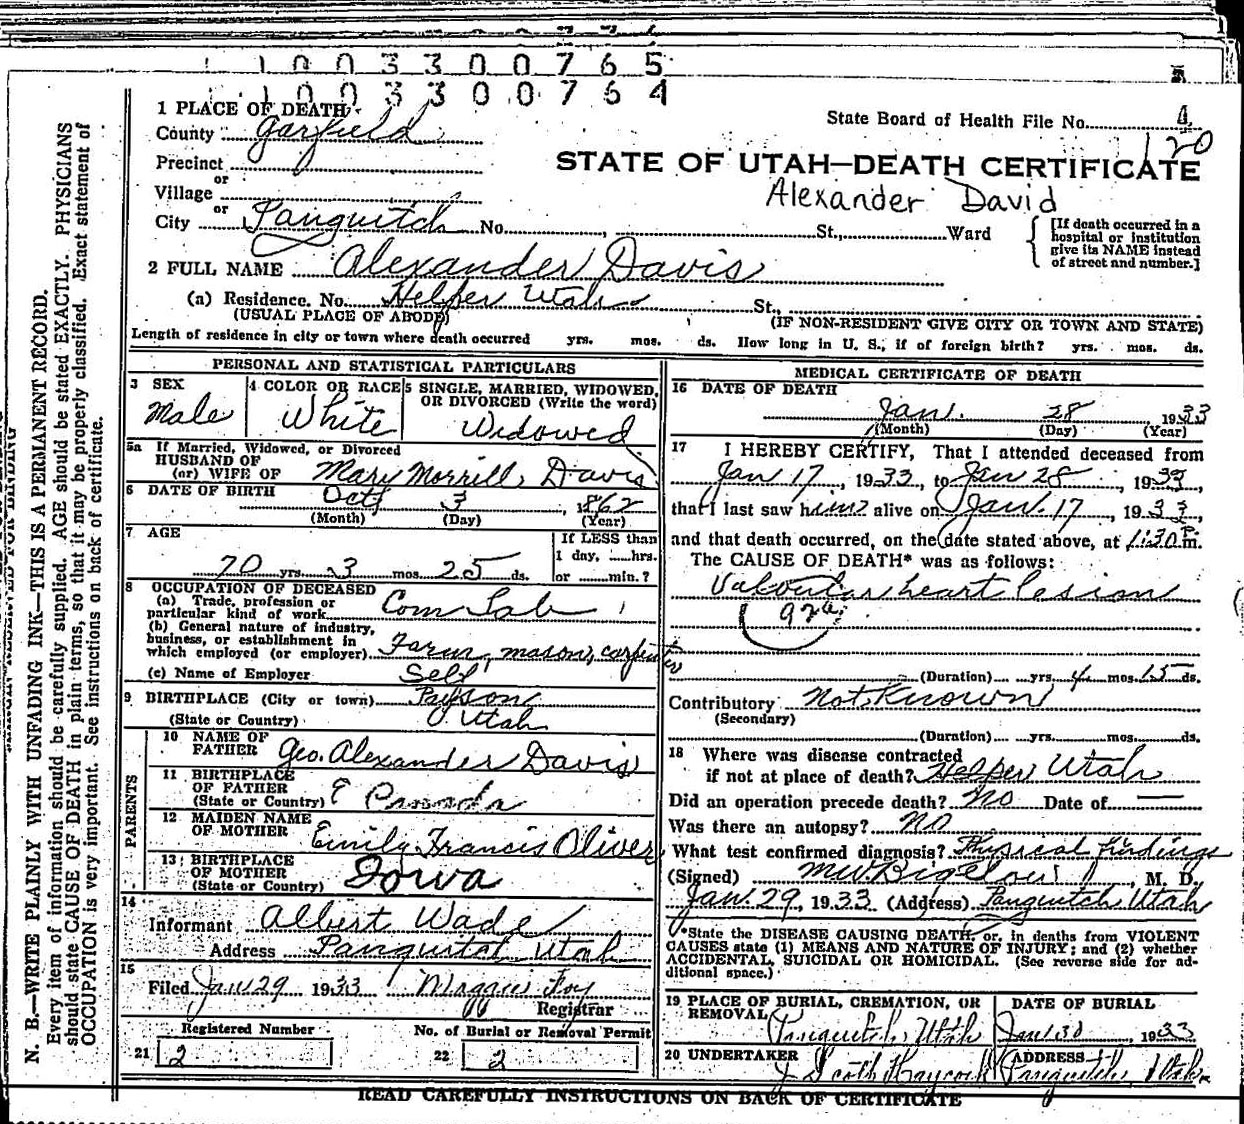 1 0 0 3 3 0 0 7 6 5
1 0 0 3 3 0 0 7 6 4
1 PLACE OF DEATH
County Garfield
Precinct
or
Village
or
City Panguitch No. , St., Ward
State Board of Health File No. 4
120
STATE OF UTAH—DEATH CERTIFICATE
Alexander David
[If death occurred in a
hospital or institution
give its NAME instead
of street and number.]
2 FULL NAME Alexander Davis
(a) Residence. No. Helper Utah St.,
(USUAL PLACE OF ABODE) (IF NON-RESIDENT GIVE CITY OR TOWN AND STATE)
Length of residence in city or town where death occurred yrs. mos. ds. How long in U. S., if of foreign birth? yrs. mos. ds.
PERSONAL AND STATISTICAL PARTICULARS
3 SEX
Male
4 COLOR OR RACE
White
5 SINGLE, MARRIED, WIDOWED,
OR DIVORCED (Write the word)
Widowed
5a If Married, Widowed, or Divorced
HUSBAND OF
(or) WIFE OF Mary Morrill Davis
6 DATE OF BIRTH Oct 3, 1862
(Month) (Day) (Year)
7 AGE
70 yrs. 3 mos. 25 ds.
If LESS than
1 day, ......hrs.
or ........min.?
8 OCCUPATION OF DECEASED
(a) Trade, profession or
particular kind of work Com Lab
(b) General nature of industry,
business, or establishment in
which employed (or employer) Farm, mason, carpenter
(c) Name of Employer Self
9 BIRTHPLACE (City or town) Payson
(State or Country) Utah
PARENTS
10 NAME OF
FATHER Geo. Alexander Davis
11 BIRTHPLACE
OF FATHER
(State or Country) E Canada
12 MAIDEN NAME
OF MOTHER Emily Francis Oliver
13 BIRTHPLACE
OF MOTHER
(State or Country) Iowa
14
Informant Albert Wade
Address Panguitch Utah
15
Filed Jan 29 1933 Maggie Foy
Registrar
Registered Number
21 2
No. of Burial or Removal Permit
22 2
MEDICAL CERTIFICATE OF DEATH
16 DATE OF DEATH
Jan. 28 1933
(Month) (Day) (Year)
17 I HEREBY CERTIFY, That I attended deceased from
Jan 17, 1933, to Jan 28, 1933,
that I last saw him alive on Jan. 17, 1933,
and that death occurred, on the date stated above, at 1:30 P.m.
The CAUSE OF DEATH* was as follows:
Valvular heart lesion
92a
(Duration) yrs. 4 mos. 15 ds.
Contributory Not Known
(Secondary)
(Duration) yrs. mos. ds.
18 Where was disease contracted
if not at place of death? Helper Utah
Did an operation precede death? No Date of —
Was there an autopsy? no
What test confirmed diagnosis? Physical findings
(Signed) M W Bigelow, M. D.
Jan. 29, 1933 (Address) Panguitch Utah
*State the DISEASE CAUSING DEATH, or, in deaths from VIOLENT
CAUSES state (1) MEANS AND NATURE OF INJURY; and (2) whether
ACCIDENTAL, SUICIDAL OR HOMICIDAL. (See reverse side for ad-
ditional space.)
19 PLACE OF BURIAL, CREMATION, OR
REMOVAL
Panguitch, Utah
DATE OF BURIAL
Jan 30, 1933
20 UNDERTAKER
Scott Haycock
ADDRESS
Panguitch Utah
READ CAREFULLY INSTRUCTIONS ON BACK OF CERTIFICATE
N. B.—WRITE PLAINLY WITH UNFADING INK—THIS IS A PERMANENT RECORD.
Every item of information should be carefully supplied. AGE should be stated EXACTLY. PHYSICIANS
should state CAUSE OF DEATH in plain terms, so that it may be properly classified. Exact statement of
OCCUPATION is very important. See instructions on back of certificate.